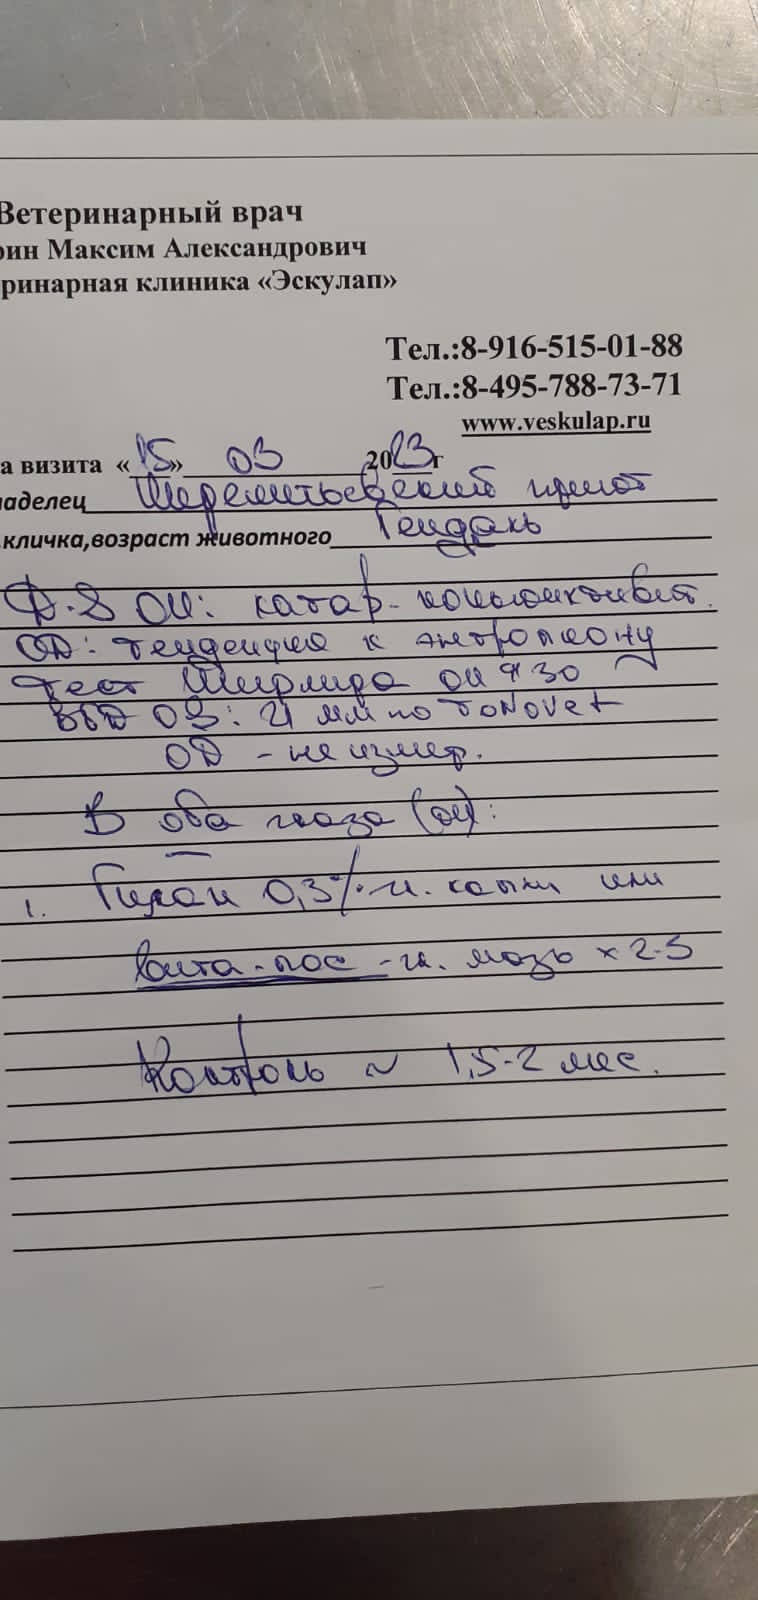 Ветеринарный врач
рин Максим Александрович
ринарная клиника «Эскулап»
Тел.:8-916-515-01-88
Тел.:8-495-788-73-71
www.veskulap.ru
а визита «15» 03 2023г
ладелец Шереметьевский приют
кличка,возраст животного
D.S OU: катар. конъюнктивит.
OD: тенденция к энтропиону
Тест Ширмера OU 30
ВГД OS: 21 мм по TONOVET
OD - не измер.
В оба глаза (OU):
1. Гилан 0,3% г. капли или
Вита-пос - г. мазь x 2-3
Контроль ~ 1,5-2 мес.